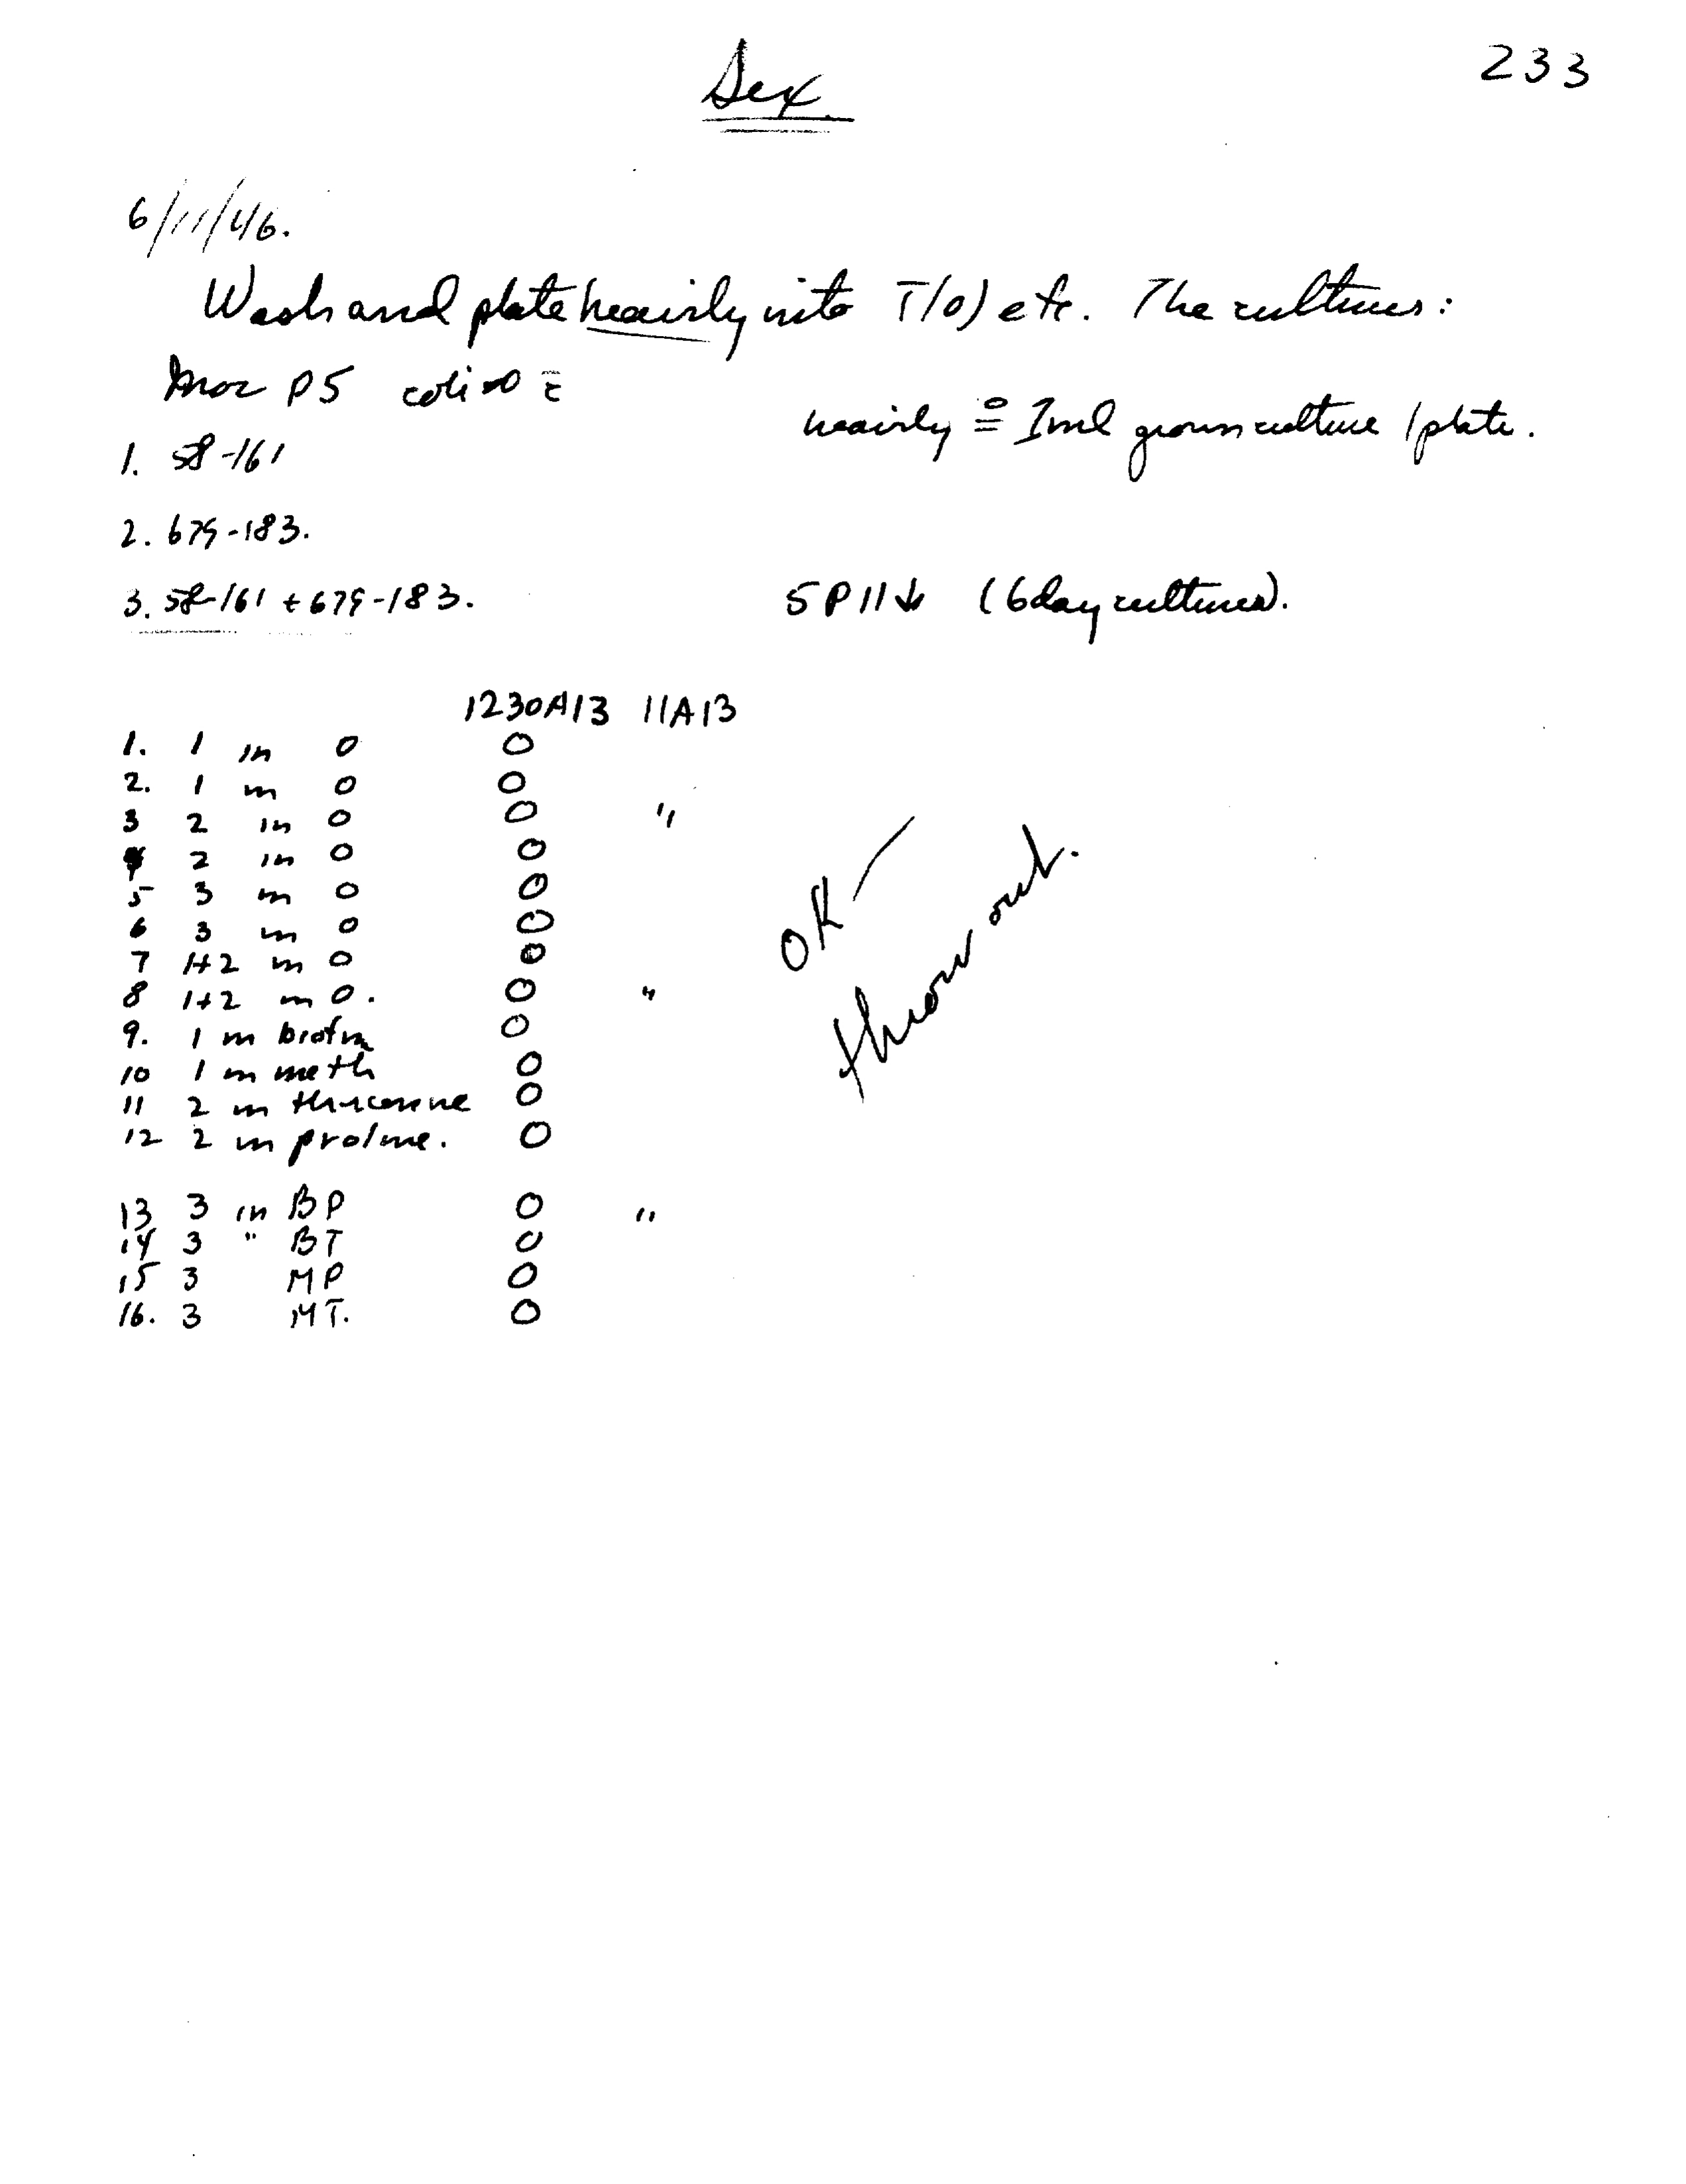 233
Sex
6/11/46.
Wash and plate heavily into T(0) etc. The cultures:
Inoc P5
heavily ≅ 1ml grown culture / plate.
1. 58-161
2. 679-183.
3. 58-161 + 679-183.
5P11↓ (6 day cultures).
1230A13 11A13
1. 1 in 0 0
2. 1 in 0 0
3 2 in 0 0 "
4 2 in 0 0
5 3 in 0 0
6 3 in 0 0
7 1+2 in 0 0
8 1+2 in 0. 0 "
9. 1 in biotin 0
10 1 in meth 0
11 2 in threonine 0
12 2 in proline. 0
13 3 in BP 0 "
14 3 " BT 0
15 3 MP 0
16. 3 MT. 0
OK —
throw out.